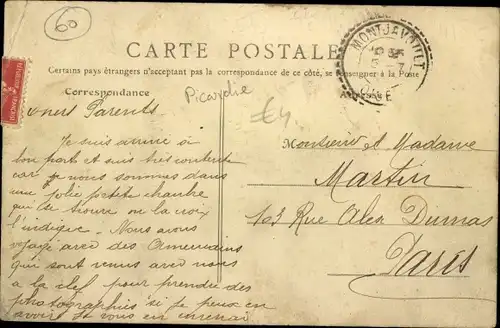 60
CARTE POSTALE
Certains pays étrangers n'acceptant pas la correspondance de ce côté, se renseigner à la Poste
MONTJAVOULT
OISE
Correspondance
Adresse
Picardie
€4.
chers Parents
Je suis arrivé à
bon port et suis très contente
car je nous sommes dans
une jolie petite chambre
qui se trouve ou la croix
l'indique. Nous avons
voyagé avec des Americains
qui sont venus avec nous
a la clef pour prendre des
photographies si je peux en
avoir je vous en enverrai
Monsieur et Madame
Martin
103 Rue Alex Dumas
Paris